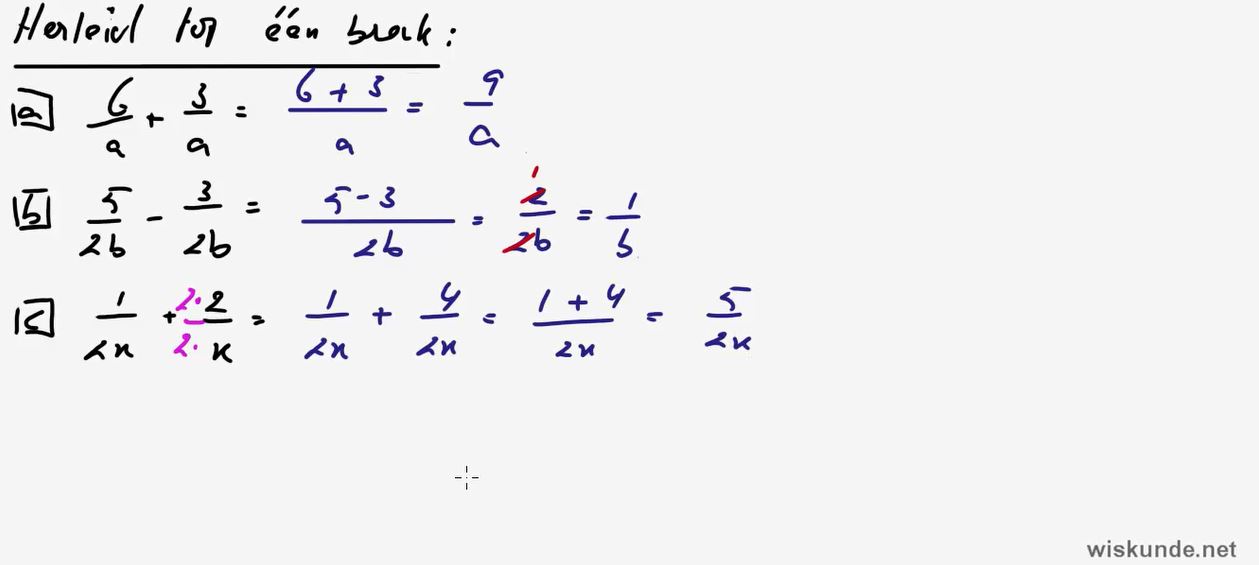 Herleid tot één breuk:
a 6/a + 3/a = (6 + 3)/a = 9/a
b 5/2b - 3/2b = (5 - 3)/2b = 2/2b 1 = 1/b
c 1/2x + 2·/2· 2/x = 1/2x + 4/2x = (1 + 4)/2x = 5/2x
wiskunde.net